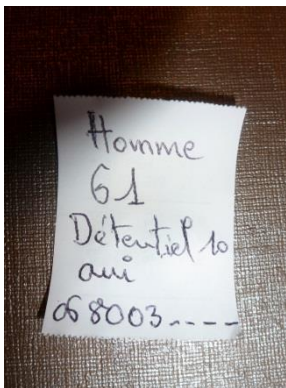 Homme
61
Détentiel 10
oui
068003----